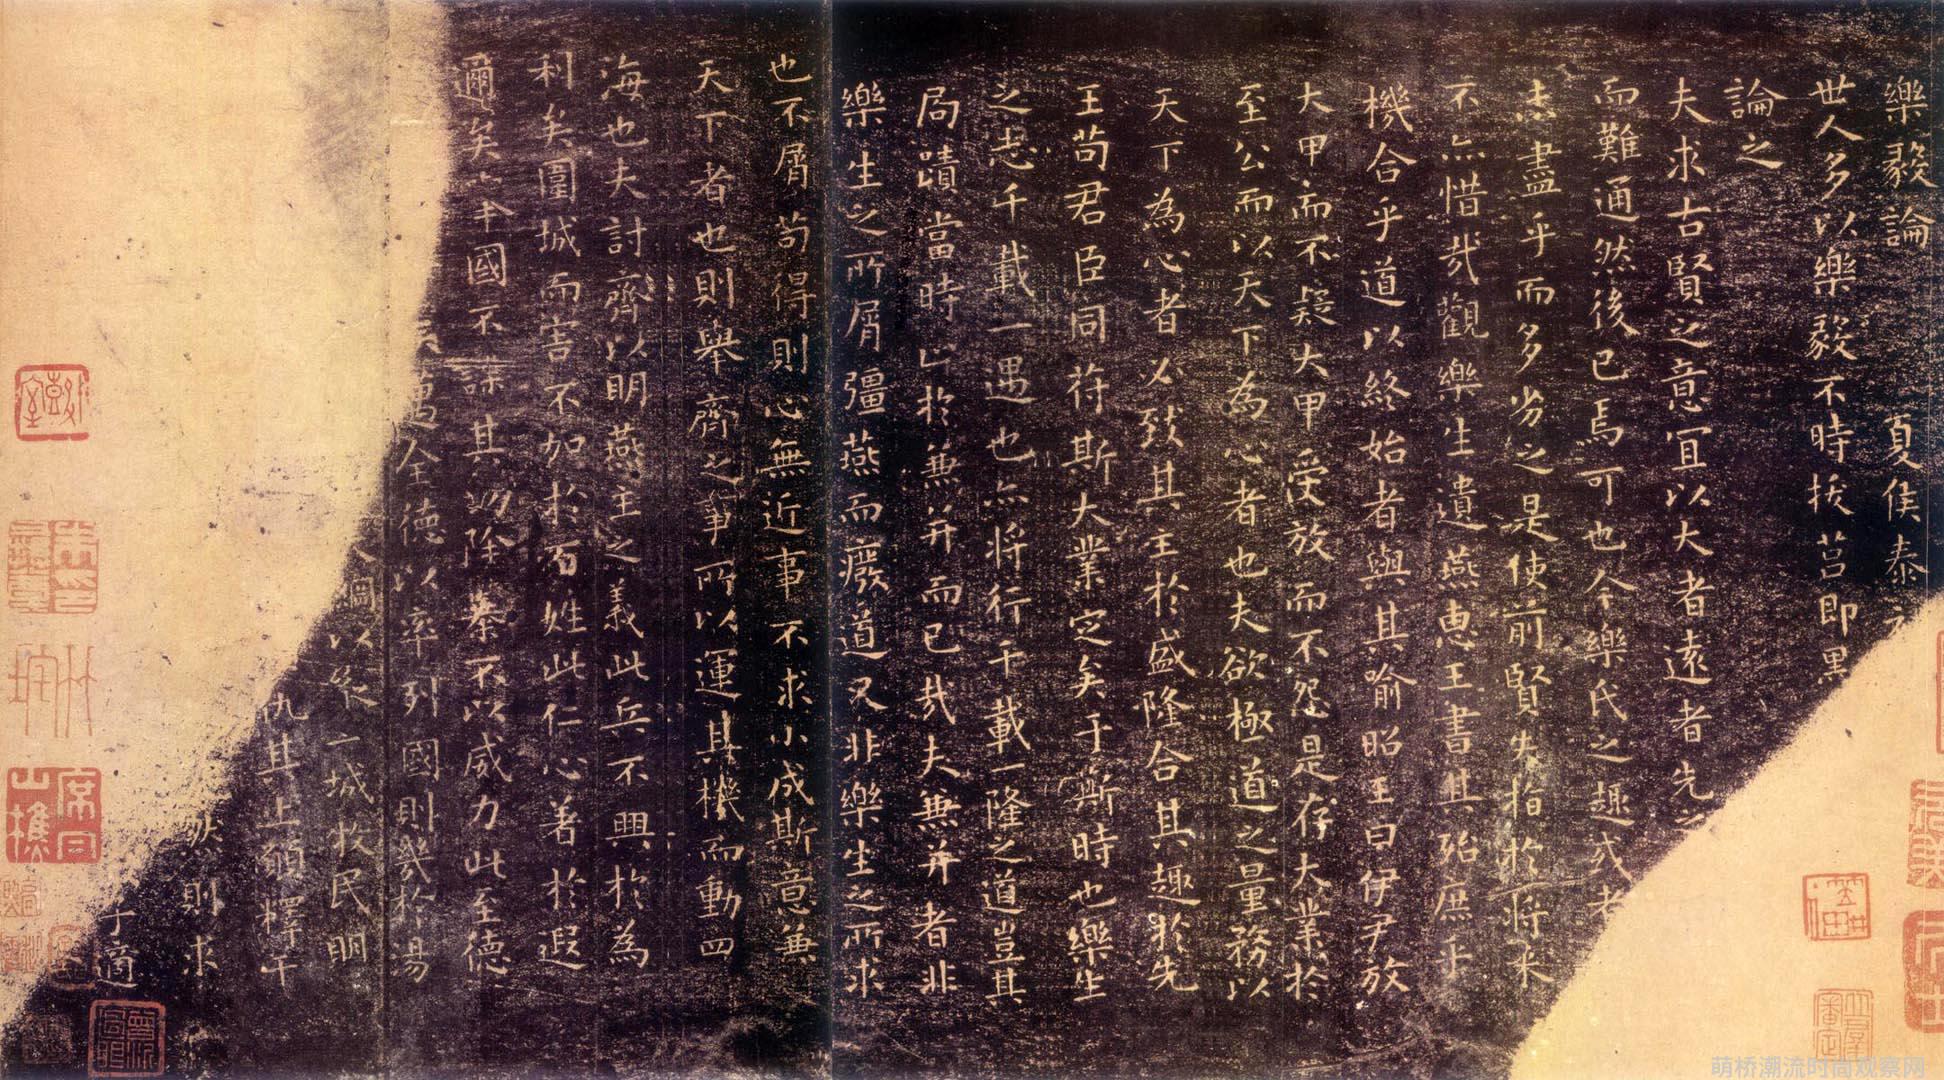 樂毅論 夏侯泰
世人多以樂毅不時拔莒即墨
論之
夫求古賢之意宜以大者遠者先之
而難通然後已焉可也今樂氏之趣或者
盡乎而多劣之是使前賢失指於將来
不亦惜哉觀樂生遺燕惠王書其殆庶乎
機合乎道以終始者與其喻昭王曰伊尹放
大甲而不疑大甲受放而不怨是存大業於
至公而以天下為心者也夫欲極道之量務以
天下為心者必致其主於盛隆合其趣於先
王苟君臣同符斯大業定矣于斯時也樂生
之志千載一遇也亦将行千載一隆之道豈其
局蹟當時止於兼并而已哉夫兼并者非
樂生之所屑彊燕而廢道又非樂生之所求
也不屑苟得則心無近事不求小成斯意兼
天下者也則舉齊之事所以運其機而動四
海也夫討齊以明燕主之義此兵不興於為
利矣圍城而害不加於百姓此仁心著於遐
邇矣舉國不謀其功除暴不以威力此至德
全德以率列國則幾於湯
以衆一城牧民明
仇其上願釋干
則求
子適
萌桥潮流时尚观察网